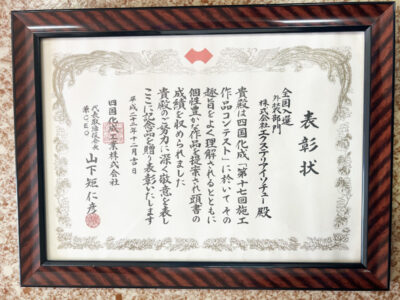 表彰状
全国入選
外装部門
株式会社エクステリアイソチュー 殿
貴殿は四国化成「第十七回施工
作品コンテスト」に於いてその
趣旨をよく理解されるとともに
個性豊かな作品を提案され頭書の
成績を収められました
貴殿のご努力に深く敬意を表し
ここに記念品を贈り表彰いたします
平成二十三年十二月吉日
四国化成工業株式会社
代表取締役会長
兼CEO
山下矩仁彦